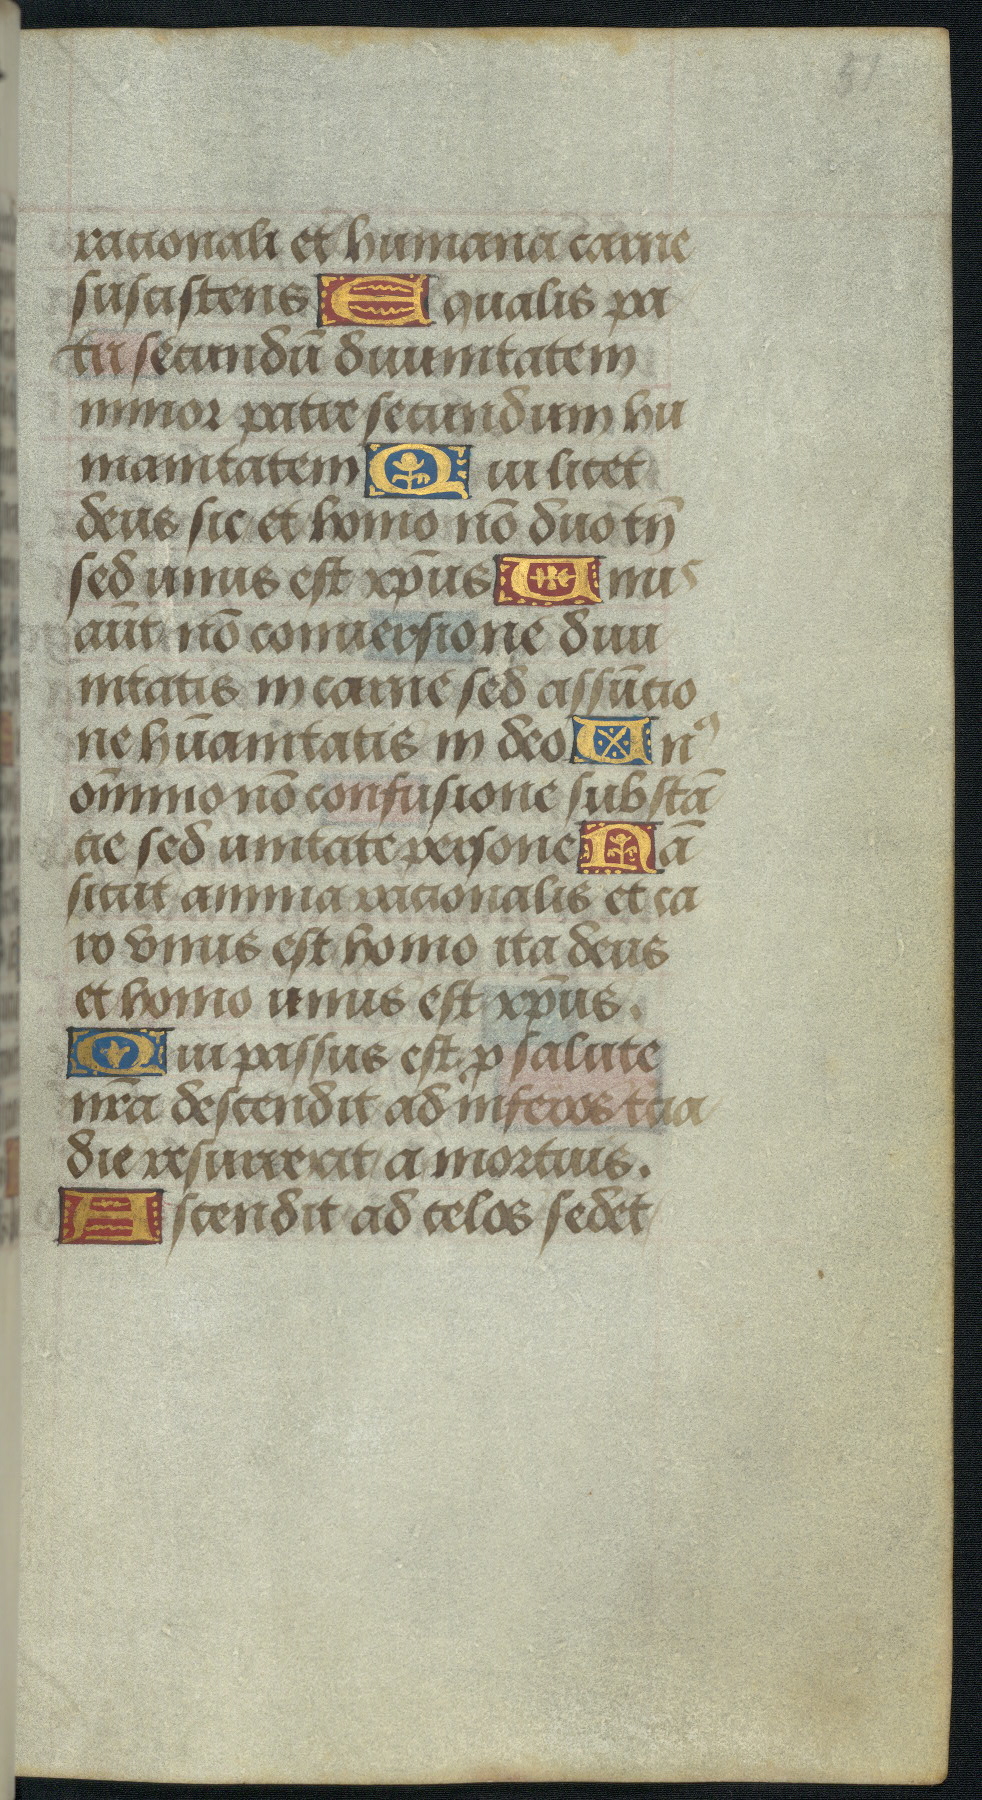 51
racionali et humana carne
susistens Equalis pa
tri secundū diuinitatem
minor patre secundum hu
manitatem Qui licet
deus sic et homo nō duo tn̄
sed unus est xp̄us Unus
aūt nō conuersione diui
nitatis in carne sed assūcio
ne hūanitatis in deo Unꝰ
om̄ino nō confusione substā
cie sed unitate persone Nā
sicut anima racionalis et ca
ro vnus est homo ita deus
et homo unus est xp̄us.
Qui passus est ꝓ salute
nr̄a descendit ad inferos tcia
die resurrexit a mortuis.
Ascendit ad celos sedet